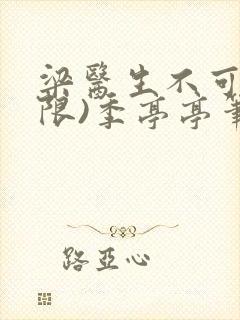 梁醫生不可
限)季亭亭筆
路亞心